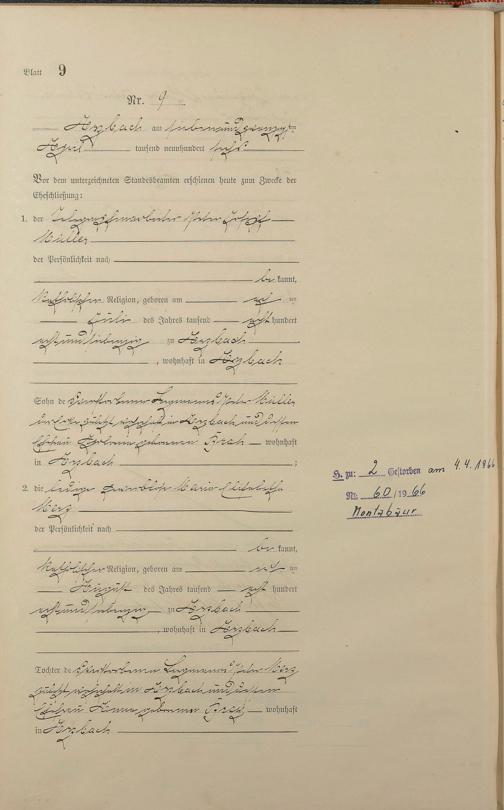 Blatt 9
Nr. 9
Arzbach am siebenundzwanzigsten
April tausend neunhundert sechs
Vor dem unterzeichneten Standesbeamten erschienen heute zum Zwecke der
Eheschließung:
1. der Telegrafenarbeiter Peter Josef
Müller
der Persönlichkeit nach
be kannt,
katholischer Religion, geboren am
Juli des Jahres tausend acht hundert
achtundsiebenzig zu Arzbach
, wohnhaft in Arzbach
Sohn de Bergmanns Peter Müller
zuletzt wohnhaft in Arzbach und dessen
Ehefrau geborenen wohnhaft
in Arzbach ;
2. die ledige Maria
Merz
der Persönlichkeit nach
be kannt,
katholischer Religion, geboren am
August des Jahres tausend acht hundert
achtundsiebenzig zu Arzbach
, wohnhaft in Arzbach
Tochter de Bergmanns Peter Merz
zuletzt wohnhaft in Arzbach und dessen
Ehefrau Anna geborenen wohnhaft
in Arzbach
H. zu: 2 Gestorben am 4.4.1966
Nr. 60/1966
Montabaur